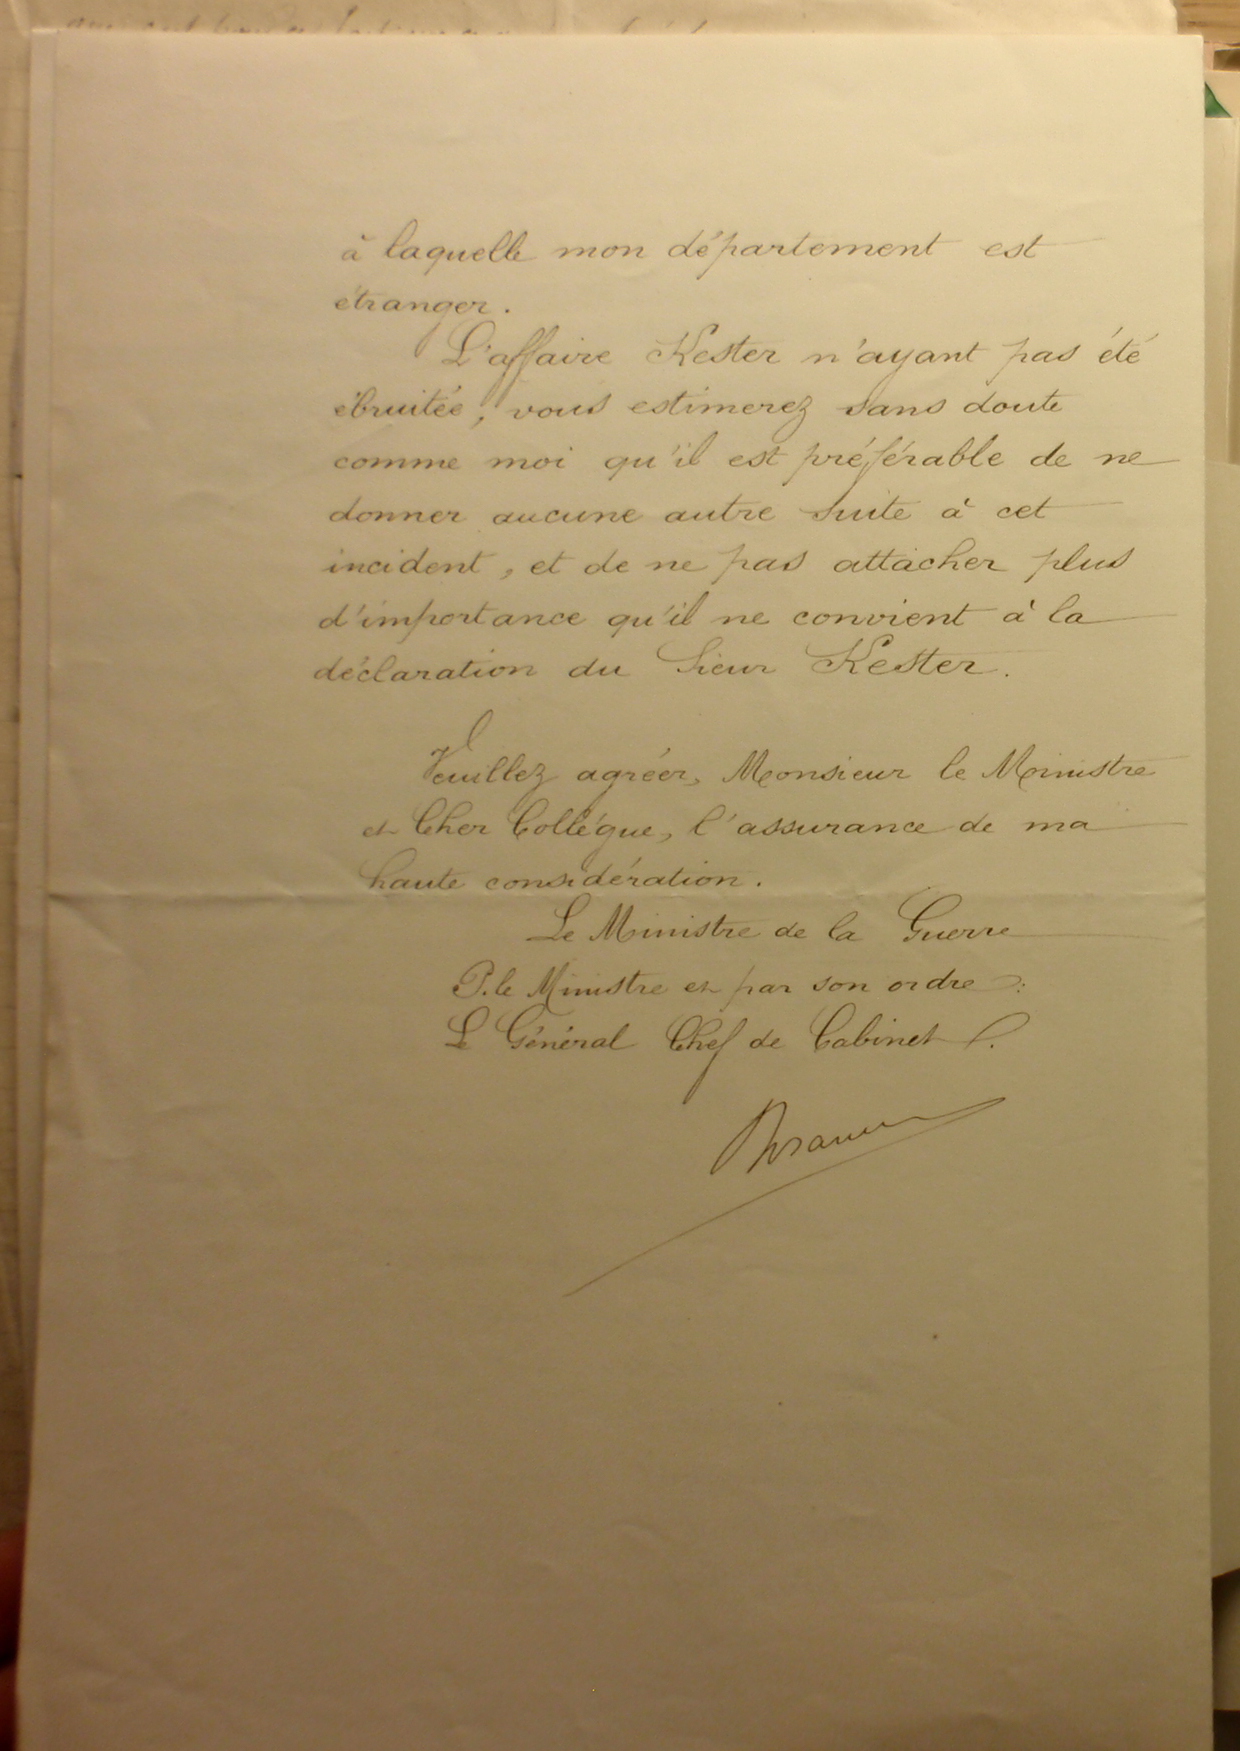 à laquelle mon département est
étranger.
L'affaire Kester n'ayant pas été
ébruitée, vous estimerez sans doute
comme moi qu'il est préférable de ne
donner aucune autre suite à cet
incident, et de ne pas attacher plus
d'importance qu'il ne convient à la
déclaration du Sieur Kester.
Veuillez agréer, Monsieur le Ministre
et Cher Collègue, l'assurance de ma
haute considération.
Le Ministre de la Guerre
P. le Ministre et par son ordre :
Le Général Chef de Cabinet